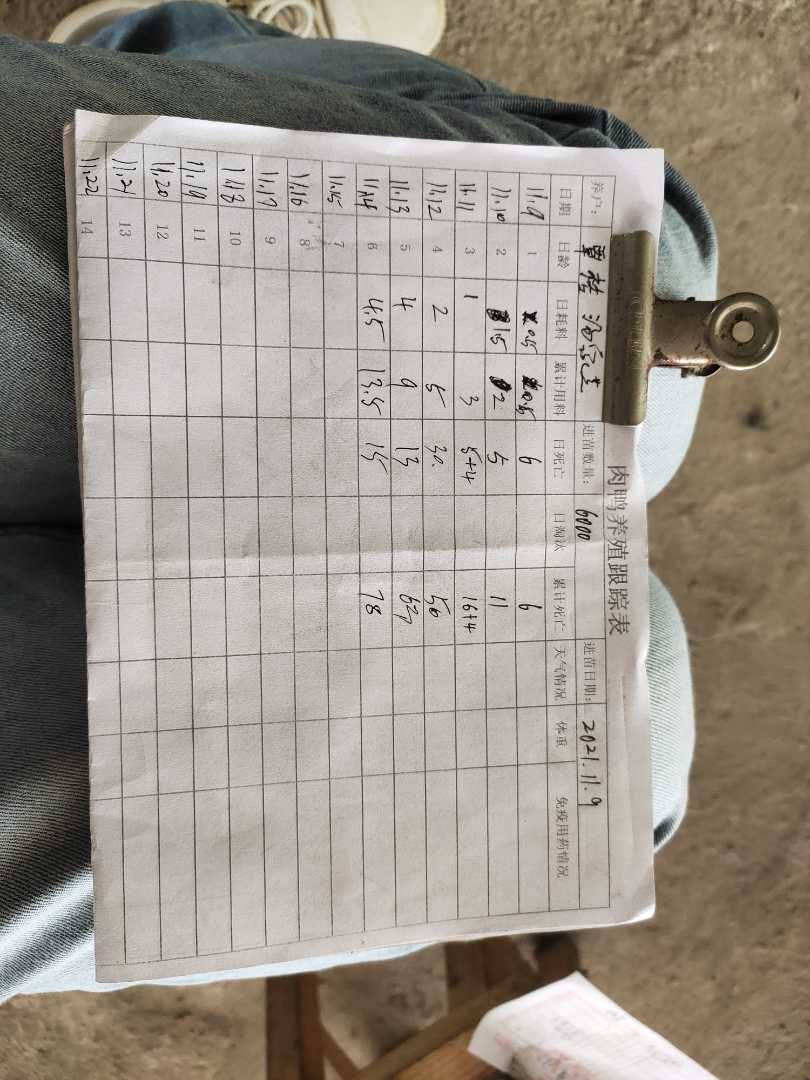 肉鸭养殖跟踪表
养户： 进苗数量： 6000 进苗日期： 2021.11.9
日期 日龄 日耗料 累计用料 日死亡 日淘汰 累计死亡 天气情况 体重 免疫用药情况
11.9 1 0.5 0.5 6 6
11.10 2 1.5 2 5 11
11.11 3 1 3 5+4 16+4
11.12 4 2 5 30 50
11.13 5 4 9 13 63
11.14 6 4.5 13.5 15 78
11.15 7
11.16 8
11.17 9
11.18 10
11.19 11
11.20 12
11.21 13
11.22 14